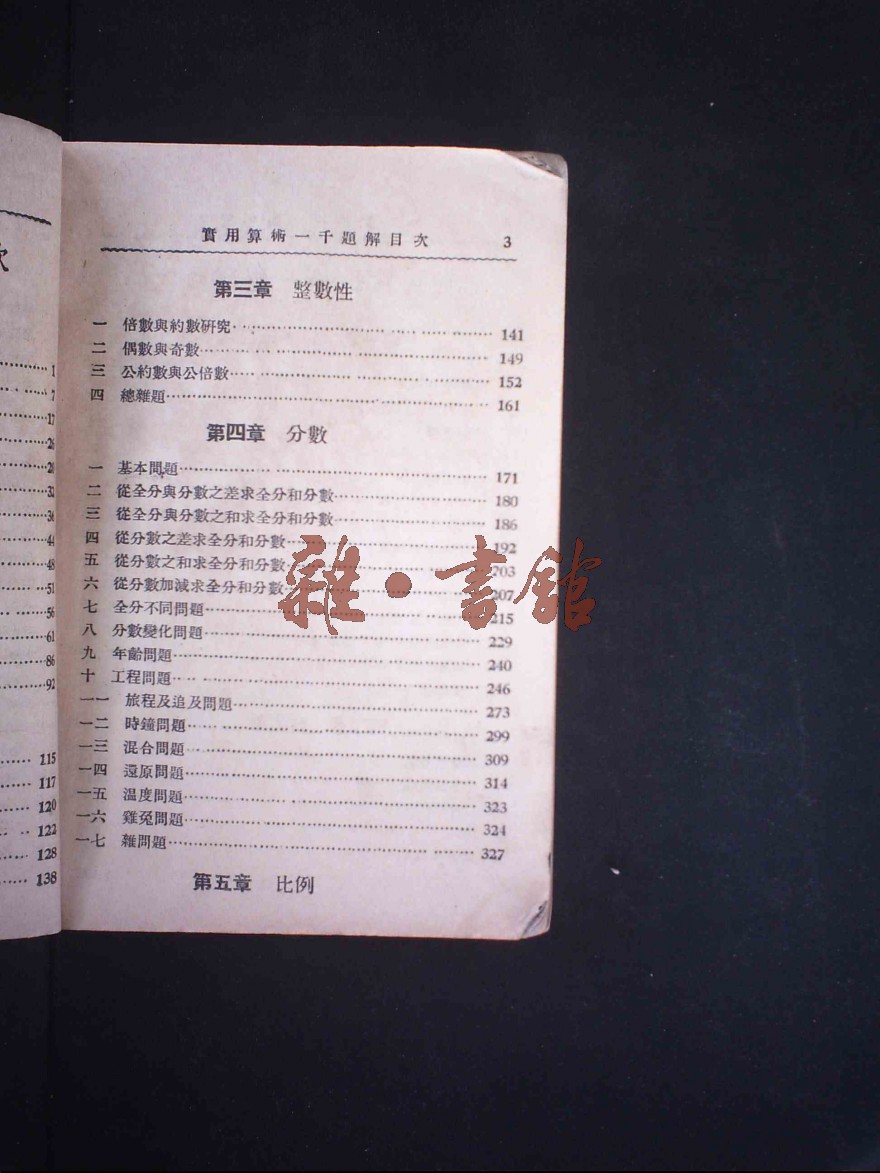 次
1
7
17
26
28
32
36
44
48
51
56
61
86
92
115
117
120
122
128
138
實用算術一千題解目次 3
第三章 整數性
一 倍數與約數研究 141
二 偶數與奇數 149
三 公約數與公倍數 152
四 總雜題 161
第四章 分數
一 基本問題 171
二 從全分與分數之差求全分和分數 180
三 從全分與分數之和求全分和分數 186
四 從分數之差求全分和分數 192
五 從分數之和求全分和分數 203
六 從分數加減求全分和分數 207
七 全分不同問題 215
八 分數變化問題 229
九 年齡問題 240
十 工程問題 246
一一 旅程及追及問題 273
一二 時鐘問題 299
一三 混合問題 309
一四 還原問題 314
一五 温度問題 323
一六 雞兔問題 324
一七 雜問題 327
第五章 比例
雜·書館